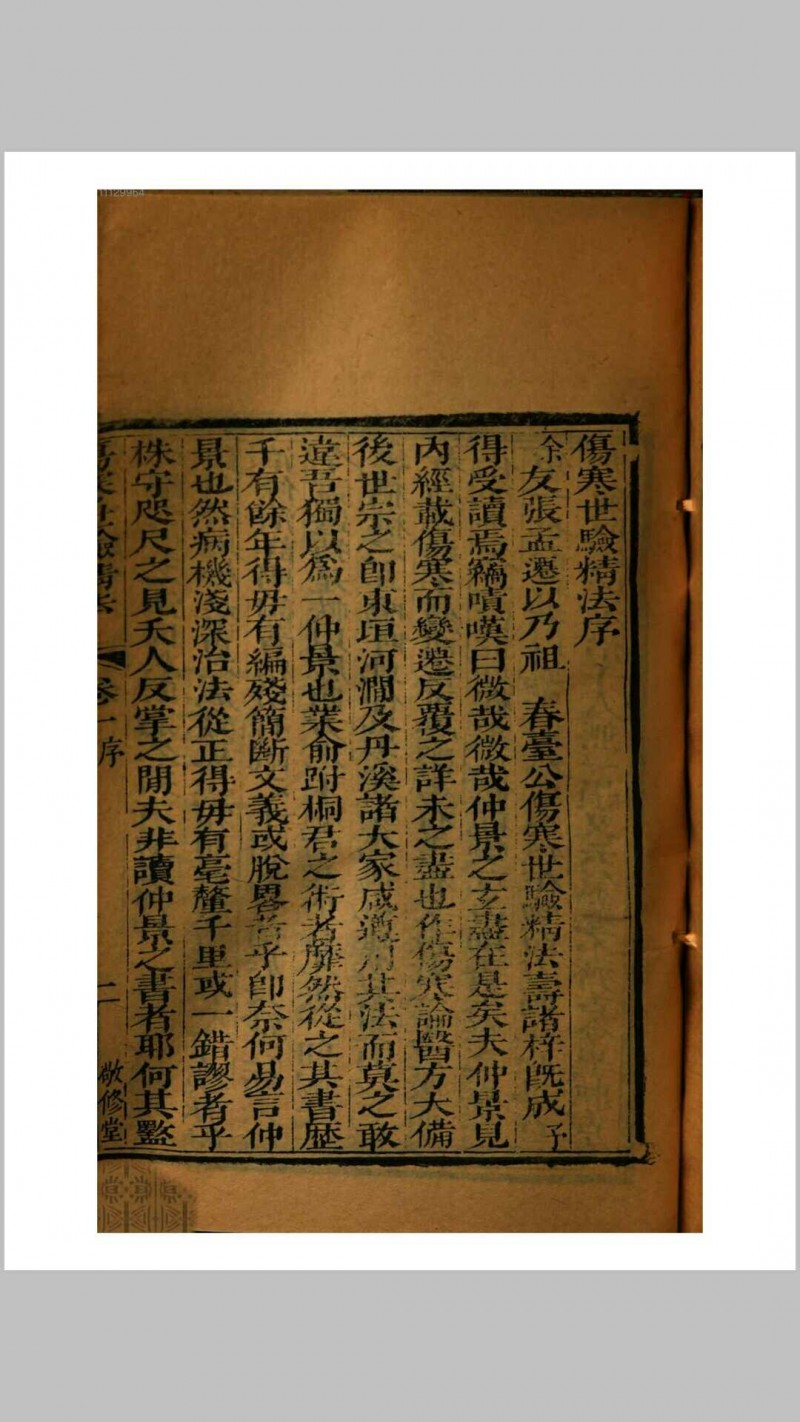 傷寒世驗精法序
余友張孟遷以乃祖　春臺公傷寒世驗精法壽諸梓既成予
得受讀焉竊嘖嘆曰微哉微哉仲景之玄盡在是矣夫仲景見
內經載傷寒而變遷反覆之詳未之盡也作傷寒論醫方大備
後世宗之即東垣河澗及丹溪諸大家咸遵用其法而莫之敢
違吾獨以為一仲景也業俞跗桐君之術者靡然從之其書歷
千有餘年得毋有編殘簡斷文義或脫畧者乎即奈何易言仲
景也然病機淺深治法從正得毋有毫釐千里或一錯謬者乎
株守咫尺之見夭人反掌之間夫非讀仲景之書者耶何其盭
傷寒世驗精法　卷一序　二　敬修堂
11129964